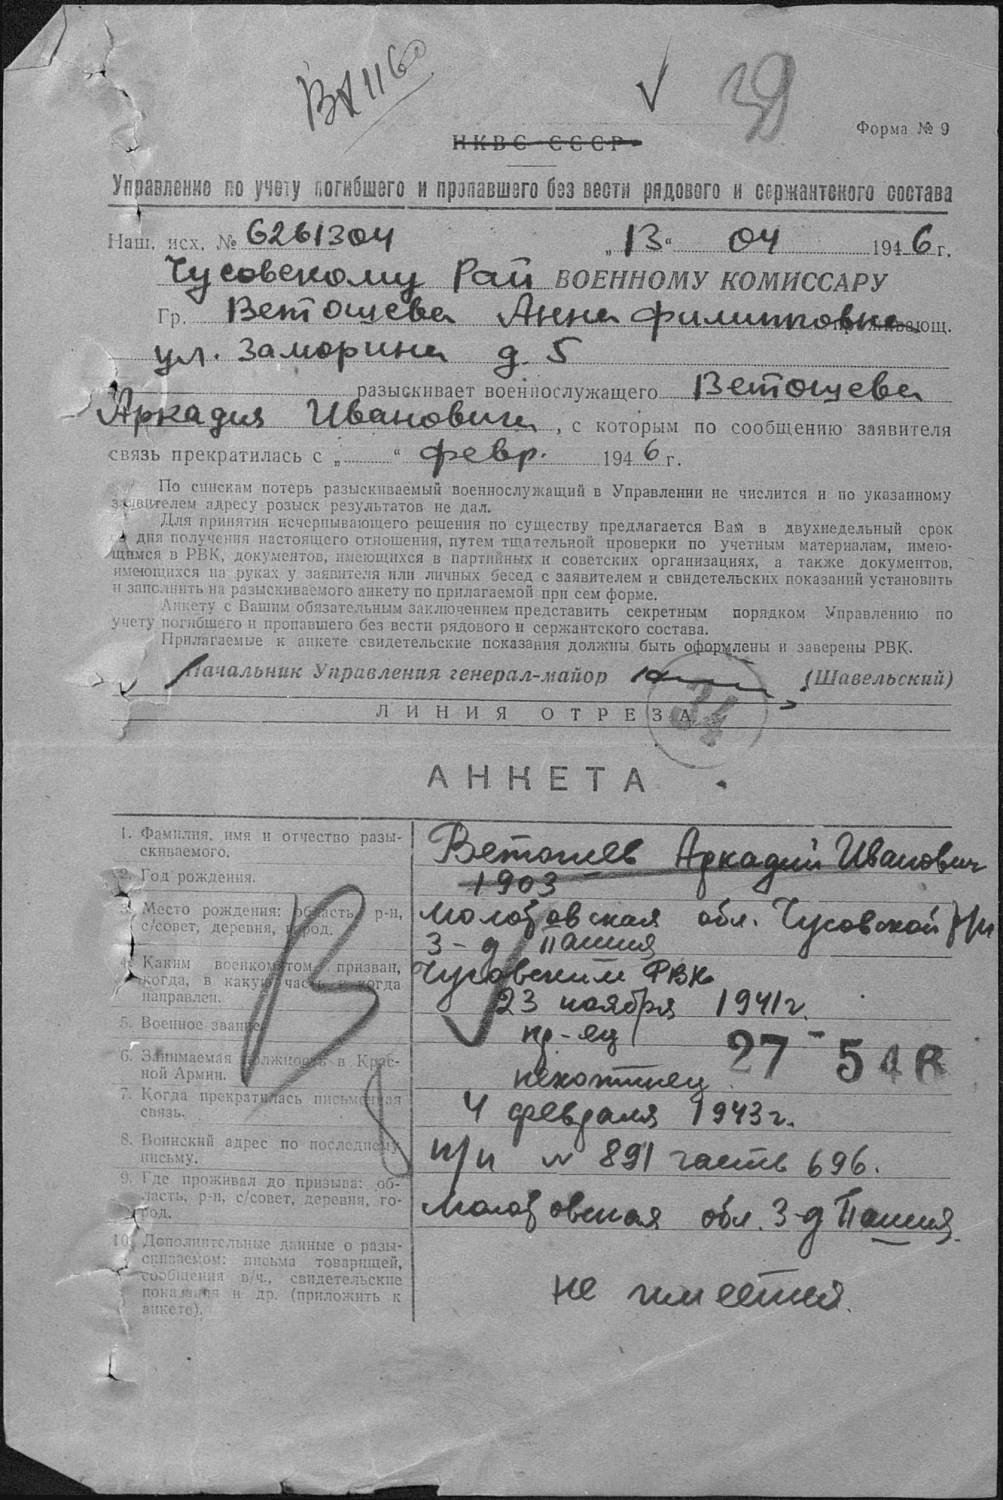 ВА 1160
39
Форма № 9
НКВС СССР
Управление по учету погибшего и пропавшего без вести рядового и сержантского состава
Наш. исх. № 6261304 „13“ 04 1946 г.
Чусовскому Рай ВОЕННОМУ КОМИССАРУ
Гр. Ветощева Анна Филипповна
ул. Заморина д. 5
разыскивает военнослужащего Ветощева
Аркадия Ивановича, с которым по сообщению заявителя
связь прекратилась с „ “ февр. 1946 г.
По спискам потерь разыскиваемый военнослужащий в Управлении не числится и по указанному
заявителем адресу розыск результатов не дал.
Для принятия исчерпывающего решения по существу предлагается Вам в двухнедельный срок
со дня получения настоящего отношения, путем тщательной проверки по учетным материалам, имею-
щимся в РВК, документов, имеющихся в партийных и советских организациях, а также документов,
имеющихся на руках у заявителя или личных бесед с заявителем и свидетельских показаний установить
и заполнить на разыскиваемого анкету по прилагаемой при сем форме.
Анкету с Вашим обязательным заключением представить секретным порядком Управлению по
учету погибшего и пропавшего без вести рядового и сержантского состава.
Прилагаемые к анкете свидетельские показания должны быть оформлены и заверены РВК.
Начальник Управления генерал-майор (Шавельский)
ЛИНИЯ ОТРЕЗА
34
АНКЕТА
1. Фамилия, имя и отчество разы-
скиваемого.
Ветошев Аркадий Иванович
2. Год рождения.
1903
3. Место рождения: область, р-н,
с/совет, деревня, город.
Молотовская обл. Чусовской р/н
З-д Пашия
4. Каким военкоматом призван,
когда, в какую часть и когда
направлен.
Чусовским РВК
23 ноября 1941 г.
5. Военное звание.
кр-ец
6. Занимаемая должность в Крас-
ной Армии.
пехотинец
27 - 546
7. Когда прекратилась письменная
связь.
4 февраля 1943 г.
8. Воинский адрес по последнему
письму.
п/п № 891 часть 696.
9. Где проживал до призыва: об-
ласть, р-н, с/совет, деревня, го-
род.
Молотовская обл. З-д Пашия.
10. Дополнительные данные о разы-
скиваемом: письма товарищей,
сообщения в/ч., свидетельские
показания и др. (приложить к
анкете).
не имеется.